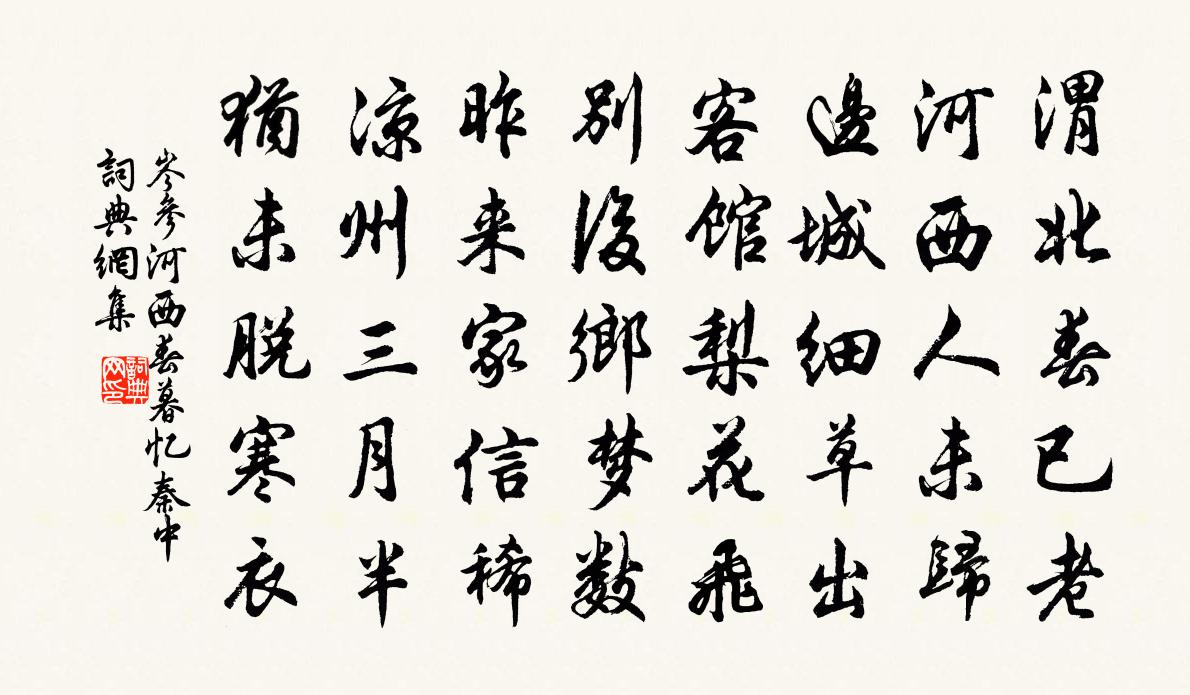 渭北春已老
河西人未歸
邊城細草出
客館梨花飛
別後鄉梦數
昨来家信稀
涼州三月半
猶未脱寒衣
岑參河西春暮忆秦中
詞典網集
詞典
网印